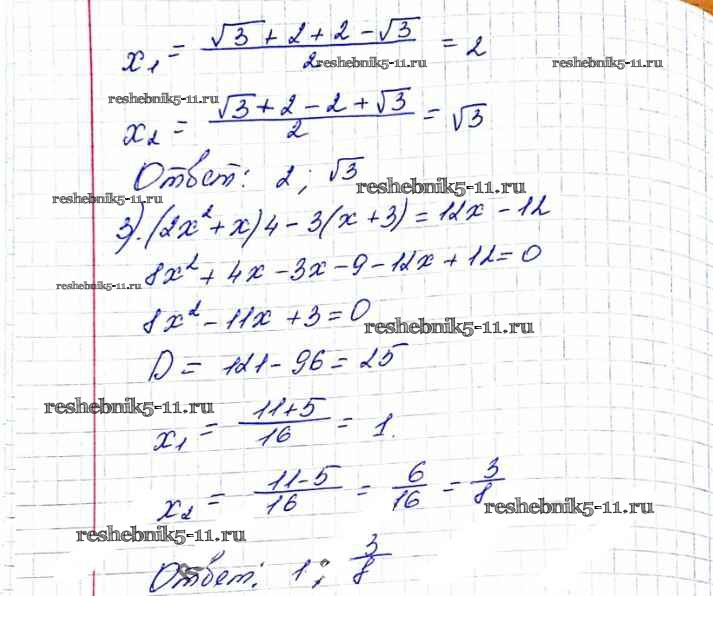 x₁ = (√3 + 2 + 2 − √3)/2 = 2
reshebnik5-11.ru reshebnik5-11.ru
reshebnik5-11.ru
x₂ = (√3 + 2 − 2 + √3)/2 = √3
Ответ: 2; √3
reshebnik5-11.ru
reshebnik5-11.ru
3). (2x² + x)4 − 3(x + 3) = 12x − 12
8x² + 4x − 3x − 9 − 12x + 12 = 0
reshebnik5-11.ru
8x² − 11x + 3 = 0
reshebnik5-11.ru
D = 121 − 96 = 25
reshebnik5-11.ru
x₁ = (11+5)/16 = 1.
x₂ = (11−5)/16 = 6/16 = 3/8
reshebnik5-11.ru
reshebnik5-11.ru
Ответ: 1; 3/8